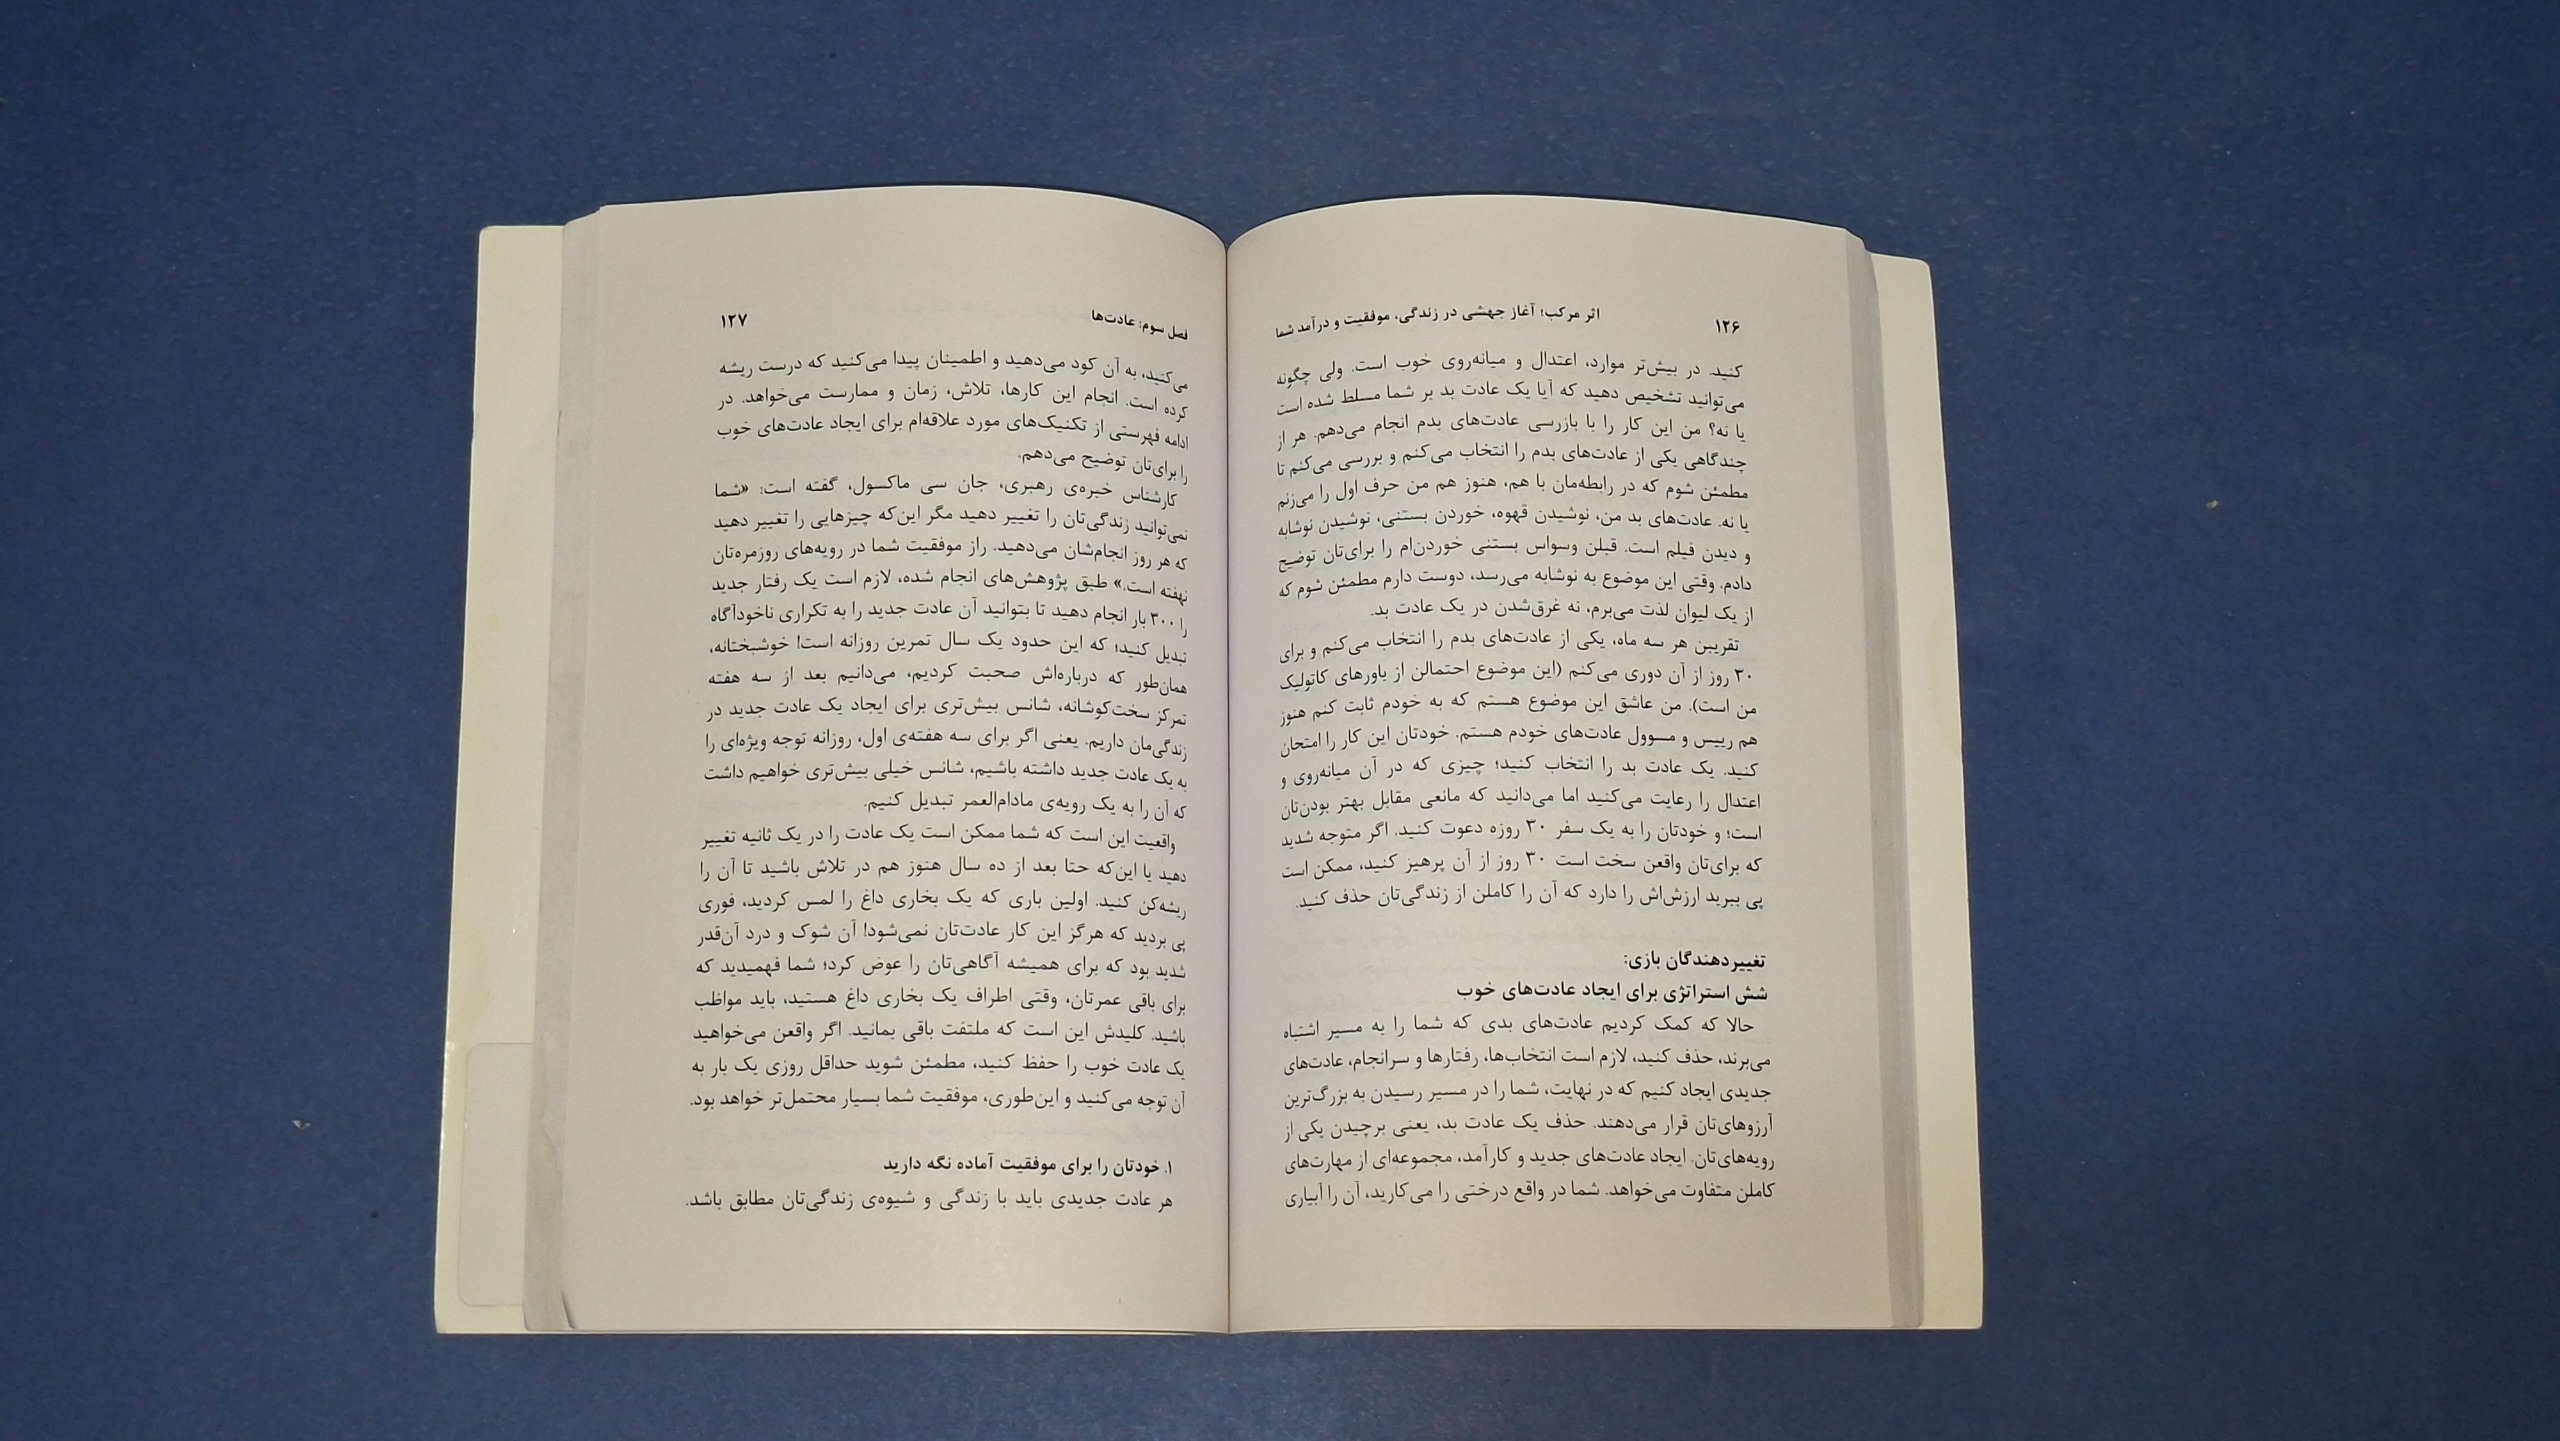 ۱۲۶
اثر مرکب؛ آغاز جهشی در زندگی، موفقیت و درآمد شما
کنید. در بیش‌تر موارد، اعتدال و میانه‌روی خوب است. ولی چگونه
می‌توانید تشخیص دهید که آیا یک عادت بد بر شما مسلط شده است
یا نه؟ من این کار را با بازرسی عادت‌های بدم انجام می‌دهم. هر از
چندگاهی یکی از عادت‌های بدم را انتخاب می‌کنم و بررسی می‌کنم تا
مطمئن شوم که در رابطه‌مان با هم، هنوز هم من حرف اول را می‌زنم
یا نه. عادت‌های بد من، نوشیدن قهوه، خوردن بستنی، نوشیدن نوشابه
و دیدن فیلم است. قبلن وسواس بستنی خوردن‌ام را برای‌تان توضیح
دادم. وقتی این موضوع به نوشابه می‌رسد، دوست دارم مطمئن شوم که
از یک لیوان لذت می‌برم، نه غرق‌شدن در یک عادت بد.
تقریبن هر سه ماه، یکی از عادت‌های بدم را انتخاب می‌کنم و برای
۳۰ روز از آن دوری می‌کنم (این موضوع احتمالن از باورهای کاتولیک
من است). من عاشق این موضوع هستم که به خودم ثابت کنم هنوز
هم رییس و مسوول عادت‌های خودم هستم. خودتان این کار را امتحان
کنید. یک عادت بد را انتخاب کنید؛ چیزی که در آن میانه‌روی و
اعتدال را رعایت می‌کنید اما می‌دانید که مانعی مقابل بهتر بودن‌تان
است؛ و خودتان را به یک سفر ۳۰ روزه دعوت کنید. اگر متوجه شدید
که برای‌تان واقعن سخت است ۳۰ روز از آن پرهیز کنید، ممکن است
پی ببرید ارزش‌اش را دارد که آن را کاملن از زندگی‌تان حذف کنید.
تغییردهندگان بازی:
شش استراتژی برای ایجاد عادت‌های خوب
حالا که کمک کردیم عادت‌های بدی که شما را به مسیر اشتباه
می‌برند، حذف کنید، لازم است انتخاب‌ها، رفتارها و سرانجام، عادت‌های
جدیدی ایجاد کنیم که در نهایت، شما را در مسیر رسیدن به بزرگ‌ترین
آرزوهای‌تان قرار می‌دهند. حذف یک عادت بد، یعنی برچیدن یکی از
رویه‌های‌تان. ایجاد عادت‌های جدید و کارآمد، مجموعه‌ای از مهارت‌های
کاملن متفاوت می‌خواهد. شما در واقع درختی را می‌کارید، آن را آبیاری
فصل سوم: عادت‌ها
۱۲۷
می‌کنید، به آن کود می‌دهید و اطمینان پیدا می‌کنید که درست ریشه
کرده است. انجام این کارها، تلاش، زمان و ممارست می‌خواهد. در
ادامه فهرستی از تکنیک‌های مورد علاقه‌ام برای ایجاد عادت‌های خوب
را برای‌تان توضیح می‌دهم.
کارشناس خبره‌ی رهبری، جان سی ماکسول، گفته است: «شما
نمی‌توانید زندگی‌تان را تغییر دهید مگر این‌که چیزهایی را تغییر دهید
که هر روز انجام‌شان می‌دهید. راز موفقیت شما در رویه‌های روزمره‌تان
نهفته است.» طبق پژوهش‌های انجام شده، لازم است یک رفتار جدید
را ۳۰۰ بار انجام دهید تا بتوانید آن عادت جدید را به تکراری ناخودآگاه
تبدیل کنید؛ که این حدود یک سال تمرین روزانه است! خوشبختانه،
همان‌طور که درباره‌اش صحبت کردیم، می‌دانیم بعد از سه هفته
تمرکز سخت‌کوشانه، شانس بیش‌تری برای ایجاد یک عادت جدید در
زندگی‌مان داریم. یعنی اگر برای سه هفته‌ی اول، روزانه توجه ویژه‌ای را
به یک عادت جدید داشته باشیم، شانس خیلی بیش‌تری خواهیم داشت
که آن را به یک رویه‌ی مادام‌العمر تبدیل کنیم.
واقعیت این است که شما ممکن است یک عادت را در یک ثانیه تغییر
دهید یا این‌که حتا بعد از ده سال هنوز هم در تلاش باشید تا آن را
ریشه‌کن کنید. اولین باری که یک بخاری داغ را لمس کردید، فوری
پی بردید که هرگز این کار عادت‌تان نمی‌شود! آن شوک و درد آن‌قدر
شدید بود که برای همیشه آگاهی‌تان را عوض کرد؛ شما فهمیدید که
برای باقی عمرتان، وقتی اطراف یک بخاری داغ هستید، باید مواظب
باشید. کلیدش این است که ملتفت باقی بمانید. اگر واقعن می‌خواهید
یک عادت خوب را حفظ کنید، مطمئن شوید حداقل روزی یک بار به
آن توجه می‌کنید و این‌طوری، موفقیت شما بسیار محتمل‌تر خواهد بود.
۱. خودتان را برای موفقیت آماده نگه دارید
هر عادت جدیدی باید با زندگی و شیوه‌ی زندگی‌تان مطابق باشد.